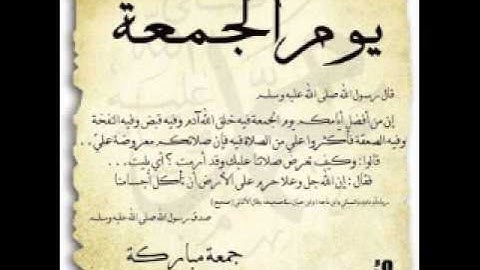 يوم الجمعة
قال رسول الله صلى الله عليه وسلم
إن من أفضل أيامكم يوم الجمعة فيه خلق الله آدم وفيه قبض وفيه النفخة
وفيه الصعقة فأكثروا علي من الصلاة فيه فإن صلاتكم معروضة علي..
قالوا: وكيف تعرض صلاتنا عليك وقد أرمت ؟ أي بليت...
فقال: إن الله جل وعلا حرم على الأرض أن تأكل أجسامنا
صدق رسول الله صلى الله عليه وسلم
جمعة مباركة